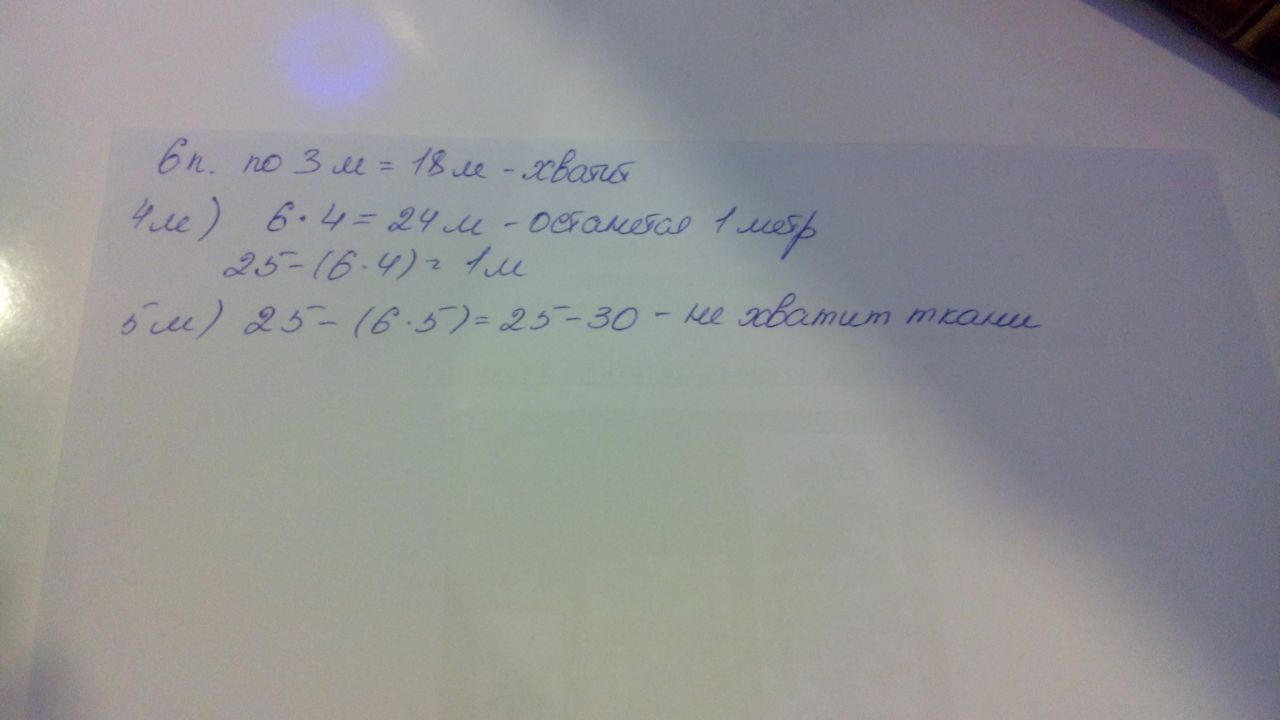 6п. по 3 м = 18 м - хватит
4м) 6·4 = 24 м - останется 1 метр
25-(6·4) = 1 м
5м) 25 - (6·5) = 25-30 - не хватит ткани